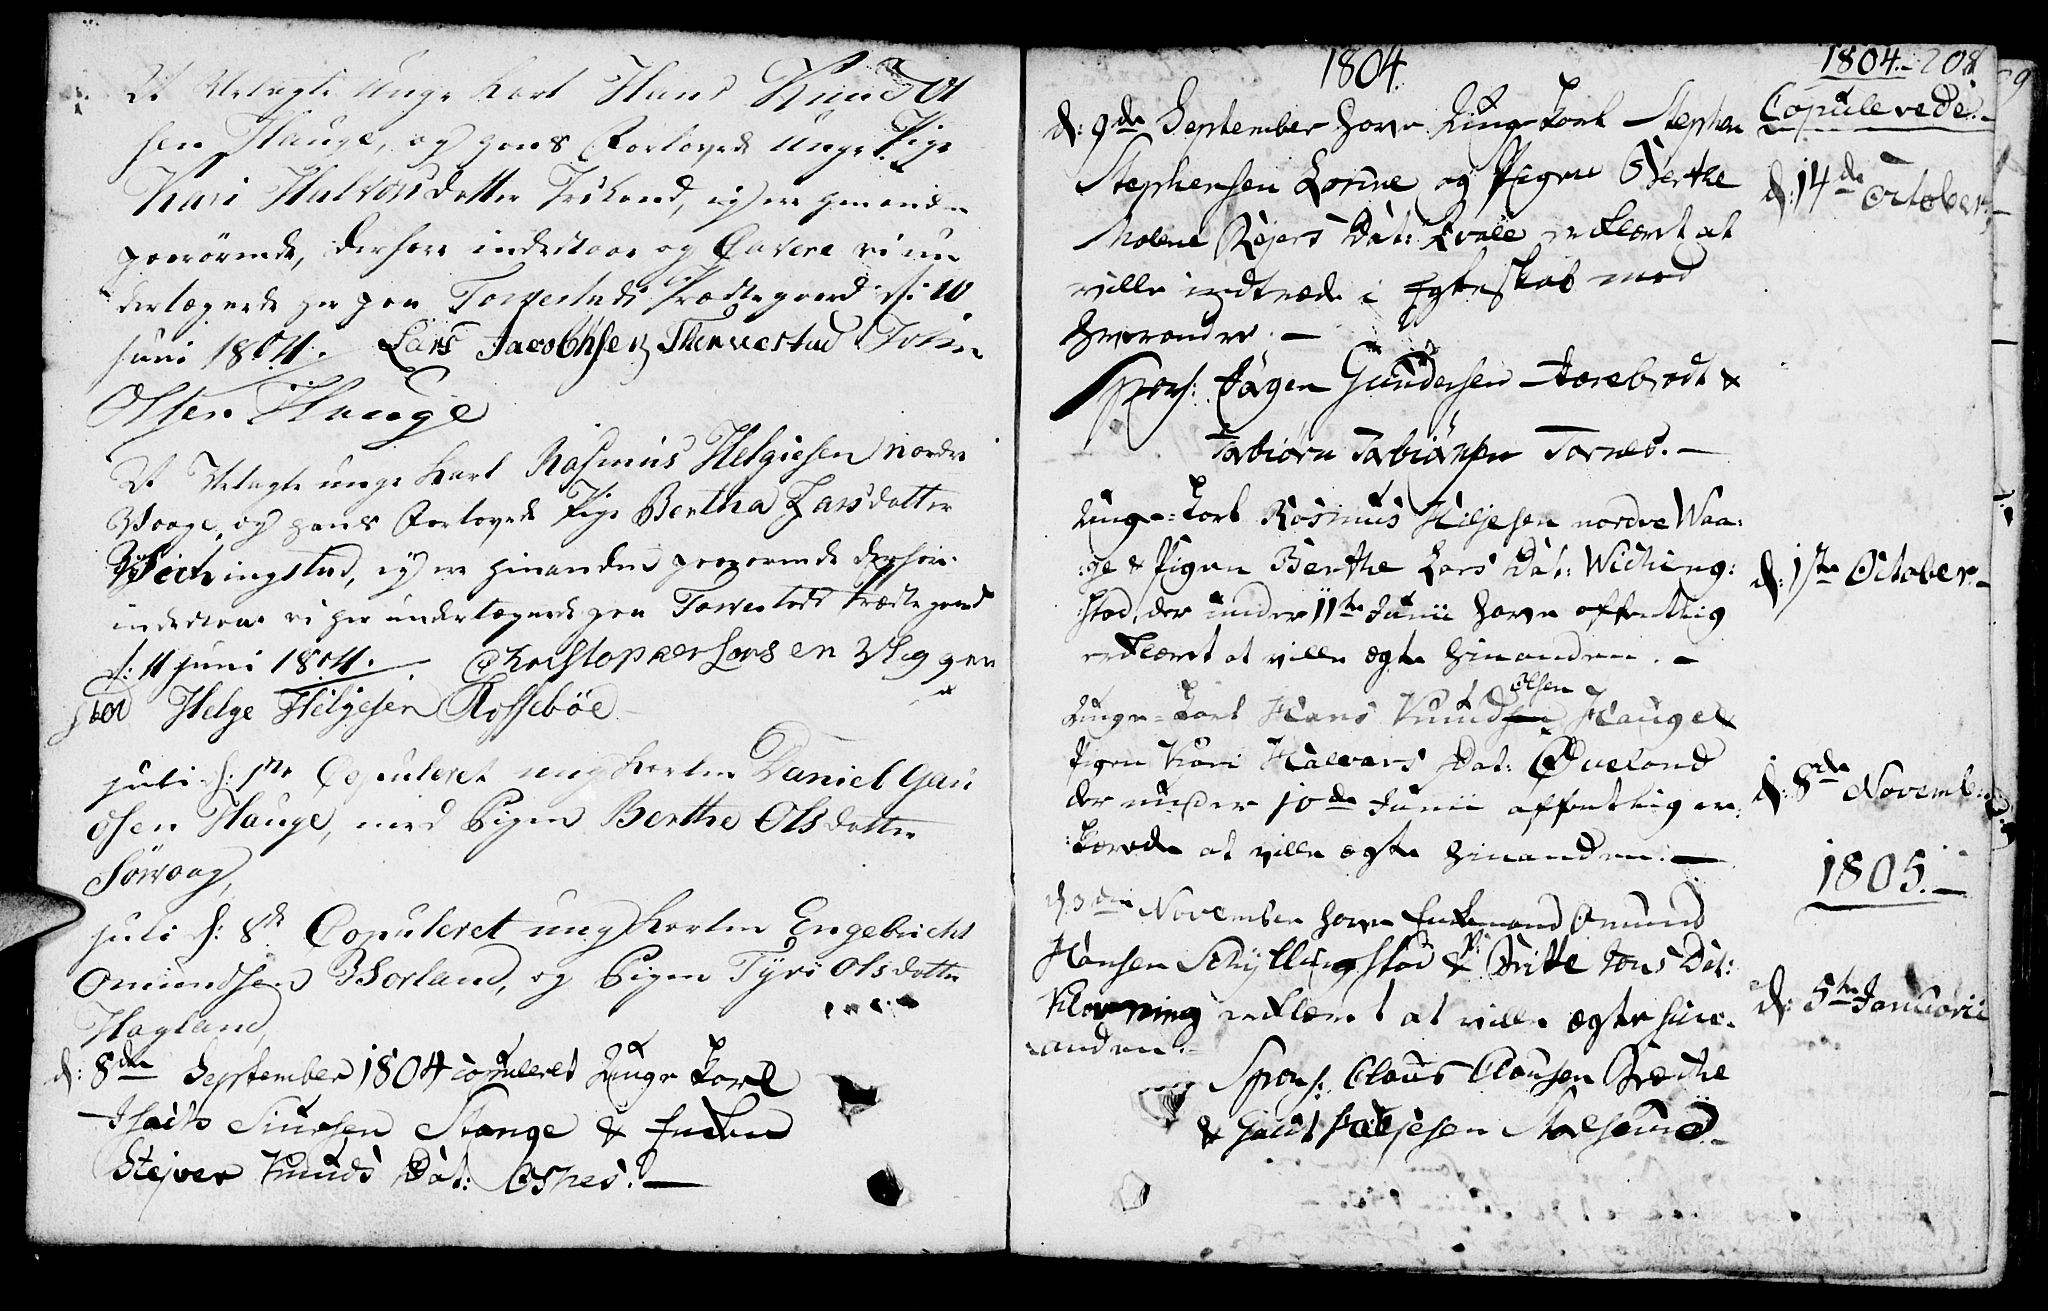 At Velagte Unge Karl Hans Knud Ol
sen Hauge, og hans Forlovede Unge Pige
Kari Halvorsdatter ej ere hinanden
paarörende, derfore indestaae og Cavere vi un
dertegnede her paa Torvestads Prædtegaard d: 10
Juni 1804. Lars Jacobhsen Thorvestad John
Olsen Hauge
At Velagte unge Karl Rasmus Helgiesen nordre
Waage, og hans Forlovede Pige Bertha Larsdatter
Wichingstad, ej ere hinanden paarorende derfore
indestaae vi her undertegnede paa Torvestads Prædtegaard
d: 11 Juni 1804. Christopher Larsen Wiggen
stad Helge Helgesen Rosseböe
Juli d: 1ste Copuleret ungkarlen Daniel Gau
tsen Hauge, med Pigen Berthe Olsdatter
Sörvaag,
Juli d: 8de Copuleret ungkarlen Engebricht
Omundsen Borland, og Pigen Tyri Olsdatter
Hagland,
d: 8de September 1804 copuleret Unge Karl
Isach Siursen Stange & Enken
Knuds Dat: Osnes. —
1804.
d: 9de September have Unge Karl Stephen
Stephensen Qvale og Pigen Berthe
Malene Rejers Dat: Qvale erklæret at
ville indtræde i Egteskab med
hverandre. —
Spons: Gundersen &
Torbiörn Torbiörnsen Tornes. —
Unge Karl Rasmus Hiljesen nordre Waa:
:ge & Pigen Berthe Lars Dat: Wiching:
:stad, der under 11te Junii have offentlig
erklæret at ville ægte hinanden. —
Unge Karl Hans Knudsen Olsen Hauge &
Pigen Kari Halvors Dat:
der under 10de Junii offentlig er:
:klærede at ville ægte hinanden. —
d. 3die November have Enkemand Omund
Hansen Schyllingstad & P: Britte Jons Dat:
Klovning erklæret at ville ægte hin:
:anden. —
Spons: Claus Clausen Brethe
& Gaut Helgesen
1804. 208
Copulerede. —
d: 14de October. —
d: 1ste October. —
d: 8de Novemb:
1805. —
d: 5te Januarii